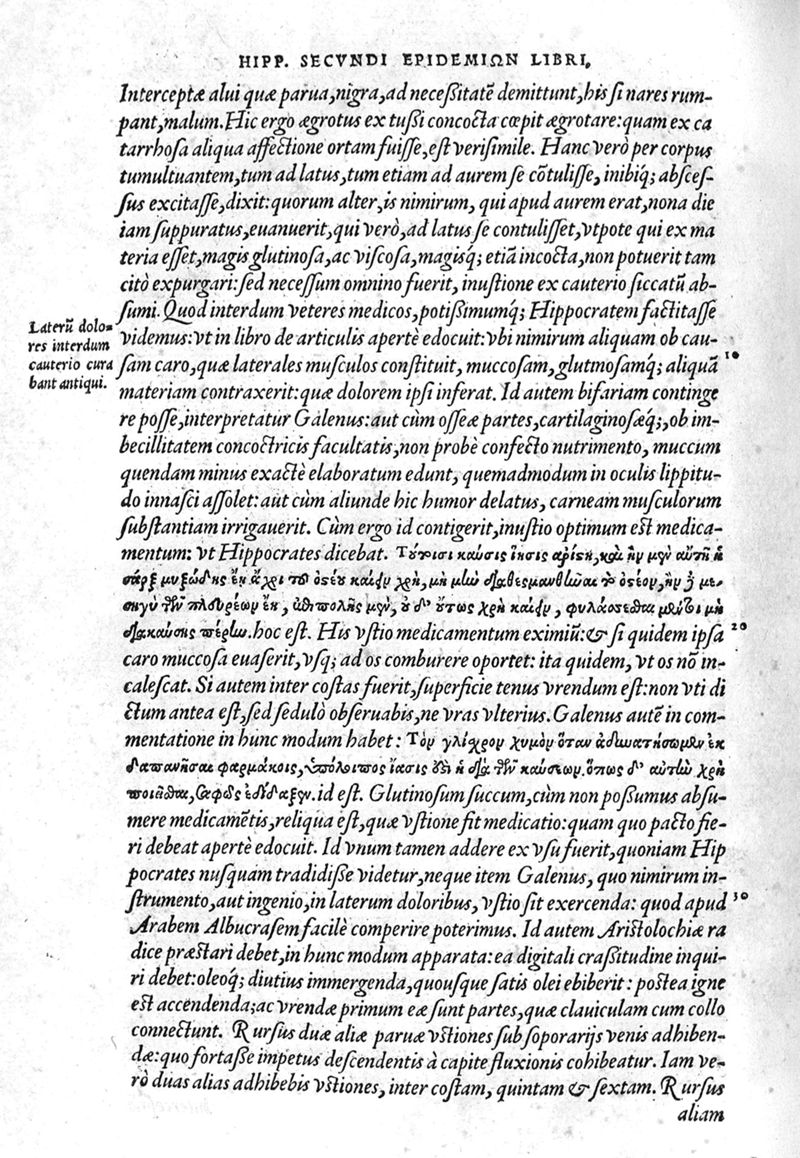 HIPP. SECVNDI EPIDEMIΩN LIBRI,
Interceptæ alui quæ parua, nigra, ad neceßitatẽ demittunt, his ſi nares rum-
pant, malum. Hic ergo ægrotus ex tußi concocta cœpit ægrotare: quam ex ca
tarrhoſa aliqua affectione ortam fuiſſe, eſt veriſimile. Hanc verò per corpus
tumultuantem, tum ad latus, tum etiam ad aurem ſe cõtuliſſe, inibiq; abſceſ-
ſus excitaſſe, dixit: quorum alter, is nimirum, qui apud aurem erat, nona die
iam ſuppuratus, euanuerit, qui verò, ad latus ſe contuliſſet, vtpote qui ex ma
teria eſſet, magis glutinoſa, ac viſcoſa, magisq́; etiã incocta, non potuerit tam
citò expurgari: ſed neceſſum omnino fuerit, inuſtione ex cauterio ſiccatũ ab-
ſumi. Quod interdum veteres medicos, potißimumq́; Hippocratem factitaſſe
Laterũ dolo=
res interdum
cauterio cura
bant antiqui.
videmus: vt in libro de articulis apertè edocuit: vbi nimirum aliquam ob cau-
ſam caro, quæ laterales muſculos conſtituit, muccoſam, glutinoſamq́; aliquã 10
materiam contraxerit: quæ dolorem ipſi inferat. Id autem bifariam continge
re poſſe, interpretatur Galenus: aut cùm oſſeæ partes, cartilaginoſæq́;, ob im-
becillitatem concoctricis facultatis, non probè confecto nutrimento, muccum
quendam minus exactè elaboratum edunt, quemadmodum in oculis lippitu-
do innaſci aſſolet: aut cùm aliunde hic humor delatus, carneam muſculorum
ſubſtantiam irrigauerit. Cùm ergo id contigerit, inuſtio optimum eſt medica-
mentum: vt Hippocrates dicebat. Τούτοισι καύσις ἴησις ἀρίστη, καὶ ἢν μὲν αὕτη ἡ
σὰρξ μυξώδης ἔῃ ἄχρι τοῦ ὀστέου καίειν χρὴ, μὴ μὲν διαθερμανθῆναι τὸ ὀστέον, ἢν δὲ με-
σηγὺ τῶν πλευρέων ἔῃ, ἐπιπολῆς μὲν, οὐδ' οὕτως χρὴ καίειν, φυλάσσεσθαι μέντοι μὴ
διακαύσῃς πέρην. hoc eſt. His vſtio medicamentum eximiũ: & ſi quidem ipſa 20
caro muccoſa euaſerit, vſq; ad os comburere oportet: ita quidem, vt os nõ in-
caleſcat. Si autem inter coſtas fuerit, ſuperficie tenus vrendum eſt: non vti di
ctum antea eſt, ſed ſedulò obſeruabis, ne vras vlterius. Galenus autẽ in com-
mentatione in hunc modum habet: Τὸν γλίσχρον χυμὸν ὅταν ἀδυνατήσωμεν ἐκ
δαπανῆσαι φαρμάκοις, ὑπόλοιπος ἴασις ἐστὶ ἡ διὰ τῶν καύσεων. ὅπως δ' αὐτὴν χρὴ
ποιεῖσθαι, σαφῶς ἐδίδαξεν. id eſt. Glutinoſum ſuccum, cùm non poßumus abſu-
mere medicamẽtis, reliqua eſt, quæ vſtione fit medicatio: quam quo pacto fie-
ri debeat apertè edocuit. Id vnum tamen addere ex vſu fuerit, quoniam Hip
pocrates nuſquam tradidiße videtur, neque item Galenus, quo nimirum in-
ſtrumento, aut ingenio, in laterum doloribus, vſtio ſit exercenda: quod apud 30
Arabem Albucraſem facilè comperire poterimus. Id autem Ariſtolochiæ ra
dice præſtari debet, in hunc modum apparata: ea digitali craßitudine inqui-
ri debet: oleoq́; diutius immergenda, quouſque ſatis olei ebiberit: poſtea igne
eſt accendenda; ac vrendæ primum eæ ſunt partes, quæ clauiculam cum collo
connectunt. Rurſus duæ aliæ paruæ vſtiones ſub ſoporarijs venis adhiben-
dæ: quo fortaße impetus deſcendentis à capite fluxionis cohibeatur. Iam ve-
rò duas alias adhibebis vſtiones, inter coſtam, quintam & ſextam. Rurſus
aliam